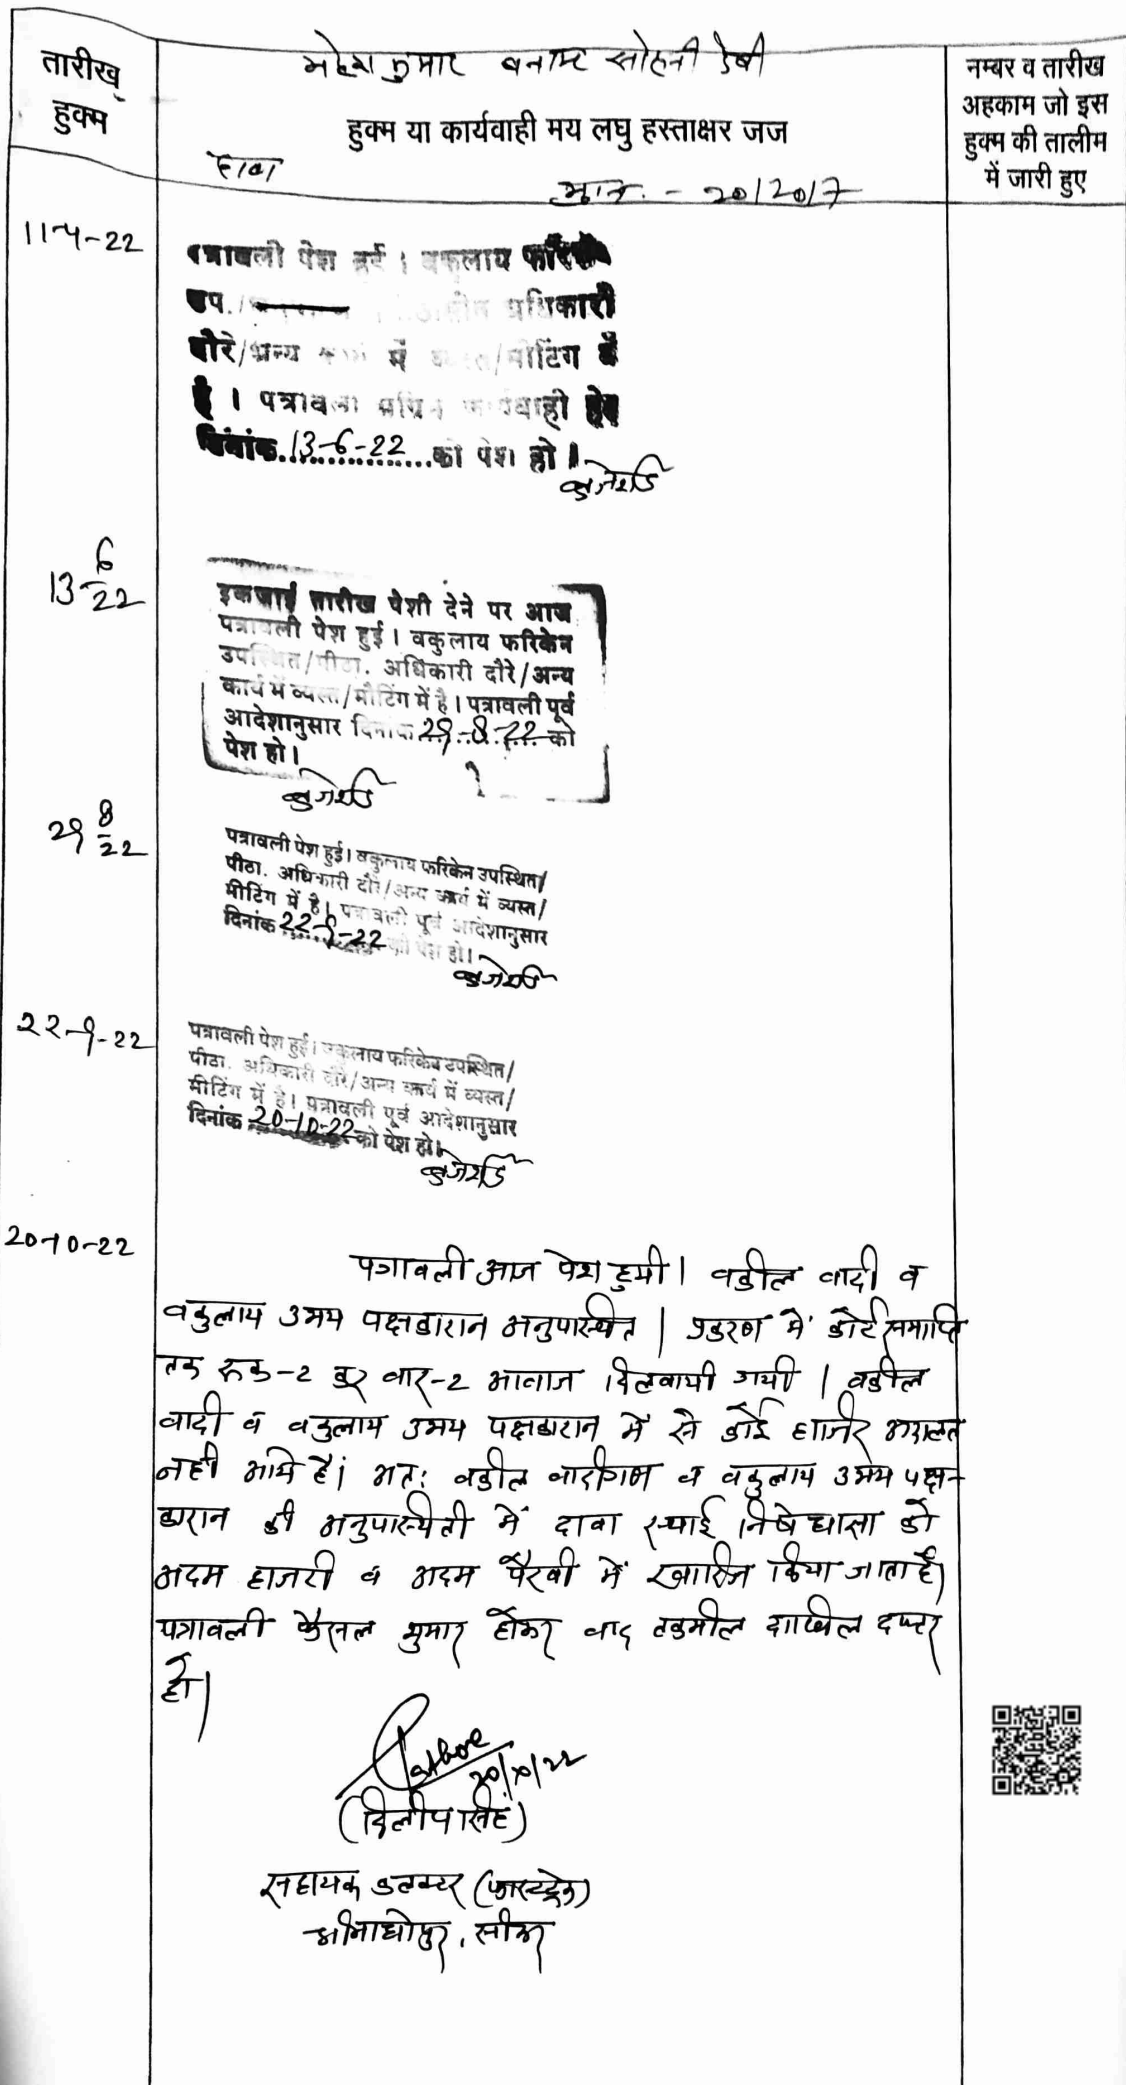 तारीख हुक्म
महेश कुमार बनाम सोहनी देवी
हुक्म या कार्यवाही मय लघु हस्ताक्षर जज
नम्बर व तारीख
अहकाम जो इस
हुक्म की तालीम
में जारी हुए
दावा
20/2017
11-4-22
पत्रावली पेश हुई । वकुलाय फरिकेन
उप./ अधिकारी
दौरे/अन्य कार्य में व्यस्त/मीटिंग में
है । पत्रावली अग्रिम कार्यवाही हेतु
दिनांक 13-6-22 को पेश हो ।
13-6-22
इकजाई तारीख पेशी देने पर आज
पत्रावली पेश हुई । वकुलाय फरिकेन
उपस्थित/पीठा. अधिकारी दौरे/अन्य
कार्य में व्यस्त/मीटिंग में है । पत्रावली पूर्व
आदेशानुसार दिनांक 29-8-22 को
पेश हो ।
29-8-22
पत्रावली पेश हुई । वकुलाय फरिकेन उपस्थित/
पीठा. अधिकारी दौरे/अन्य कार्य में व्यस्त/
मीटिंग में है । पत्रावली पूर्व आदेशानुसार
दिनांक 22-9-22 को पेश हो ।
22-9-22
पत्रावली पेश हुई । वकुलाय फरिकेन उपस्थित/
पीठा. अधिकारी दौरे/अन्य कार्य में व्यस्त/
मीटिंग में है । पत्रावली पूर्व आदेशानुसार
दिनांक 20-10-22 को पेश हो ।
20-10-22
पत्रावली आज पेश हुयी । वकील वादी व
वकुलाय उभय पक्षकारान अनुपस्थित । प्रकरण में कोर्ट समाप्ति
तक रूक-2 कर बार-2 आवाज दिलवायी गयी । वकील
वादी व वकुलाय उभय पक्षकारान में से कोई हाजिर अदालत
नहीं आये है । अतः वकील वादीगण व वकुलाय उभय पक्ष-
कारान की अनुपस्थिती में दावा स्थाई निषेधाज्ञा को
अदम हाजरी व अदम पैरवी में खारिज किया जाता है ।
पत्रावली फैसल शुमार होकर बाद तकमील दाखिल दफ्तर
हो ।
20/10/22
(दिलीप सिंह)
सहायक कलक्टर (फास्टट्रेक)
श्रीमाधोपुर, सीकर